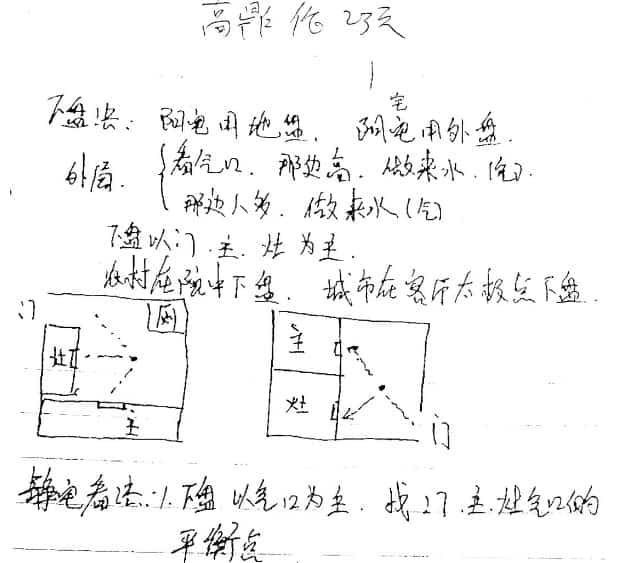 高鼎 23天
宅
下盘法：阴宅用地盘. 阳宅用外盘.
外局. 看气口. 那边高. 做来水.(气).
那边人多. 做来水(气)
下盘以门.主.灶为主.
农村在院中下盘. 城市在客厅太极点下盘.
门 厕
灶
主
主
灶
门
静宅看法:1.下盘以气口为主. 找门.主.灶气口的
平衡点